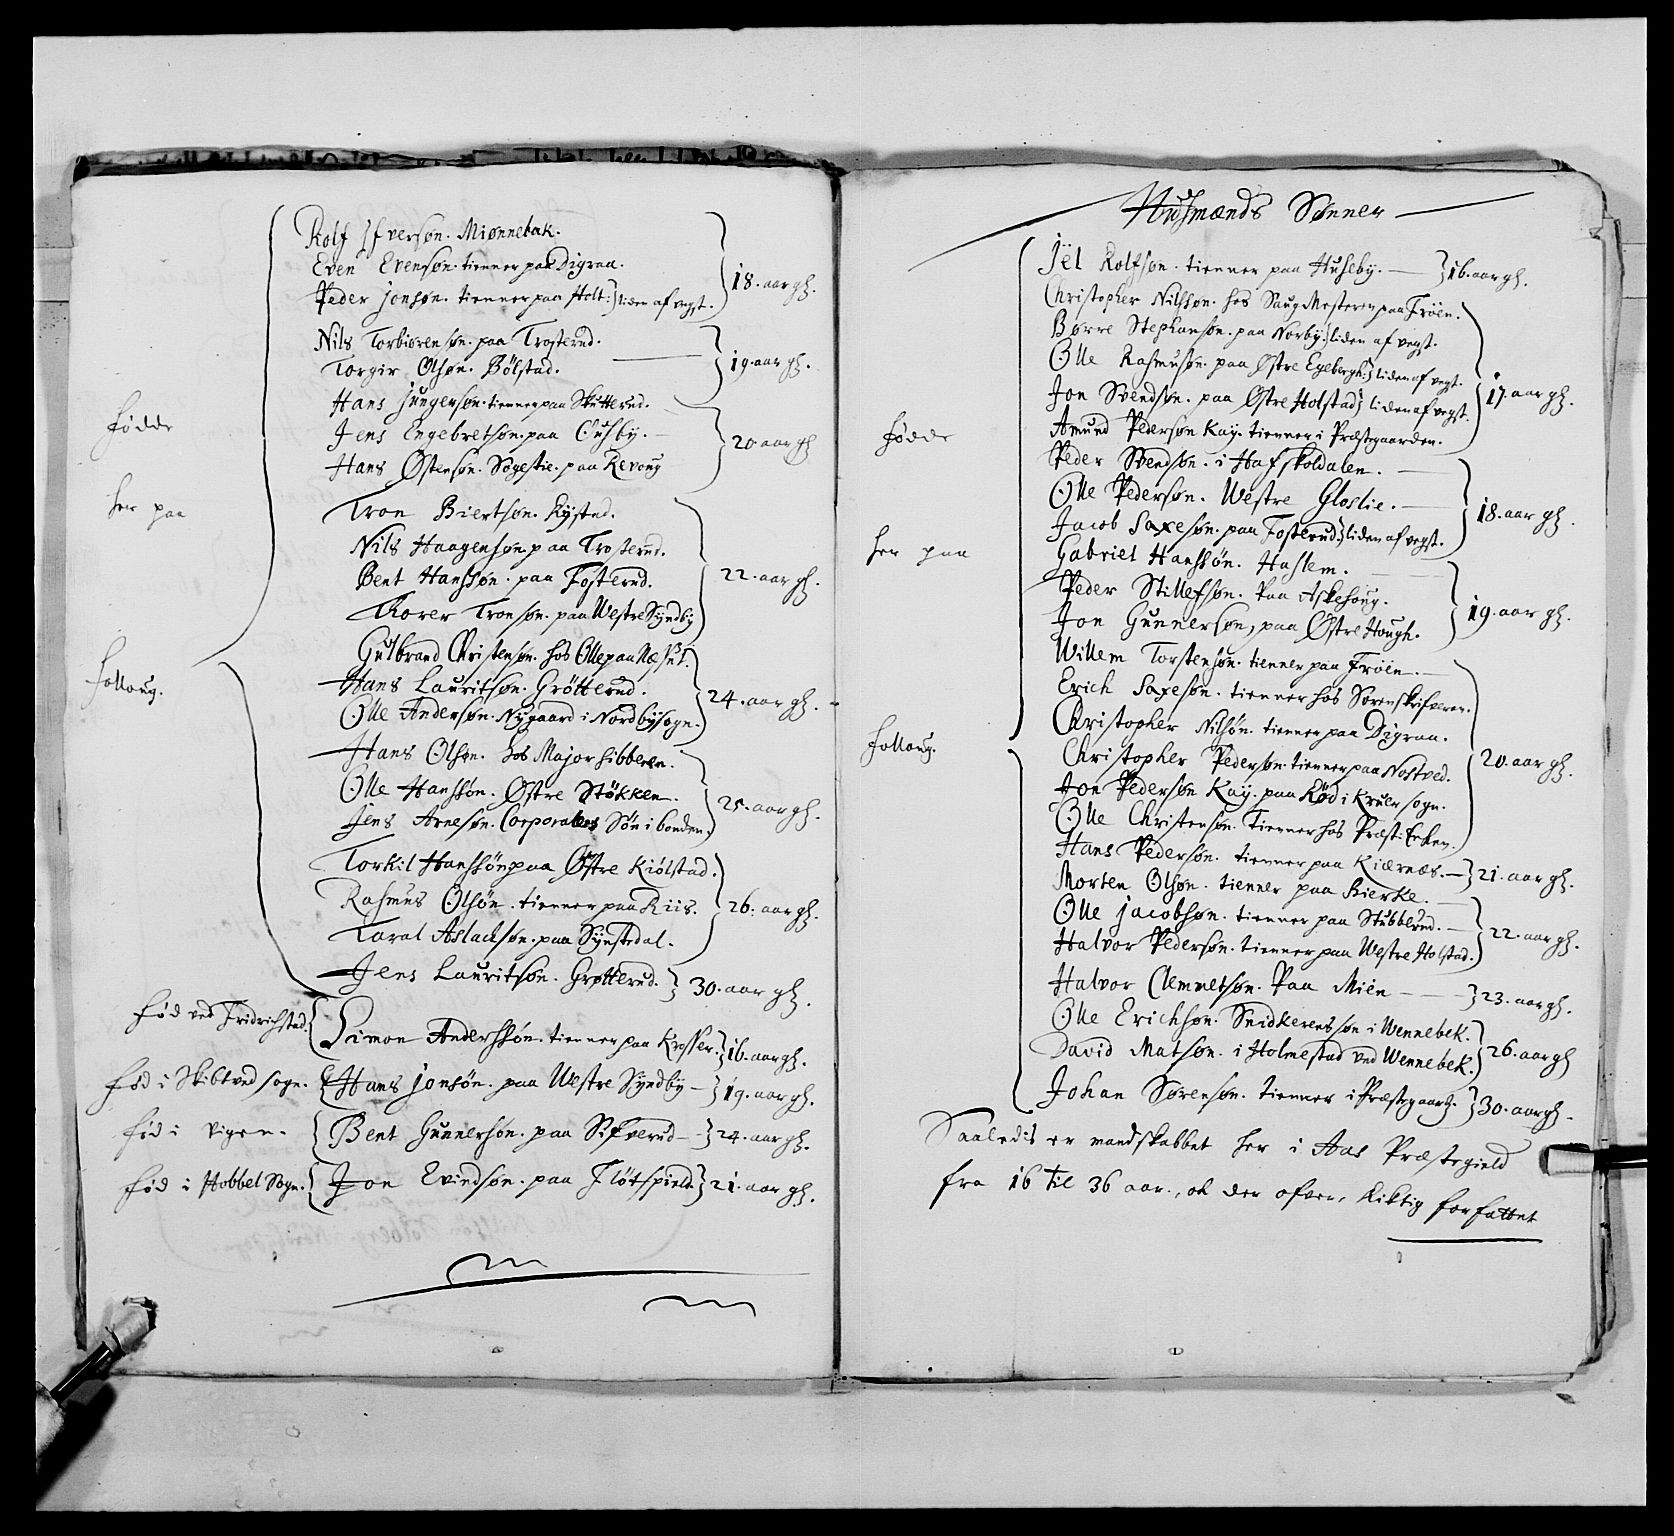 Rolf Ifversøn. Miønnebek.
Even Evensøn. tienner paa Digraa.
Peder jonsøn. tienner paa Holt.} liden af vegst. } 18. aar gl.
Nils Torbiørensøn. paa Trosterud.
Torgir Olsøn. Bølstad. } 19. aar gl.
Hans jungersøn. tienner paa Skutterud.
Jens Engebretsøn. paa Husby.
Hans Østensøn. Søgestie. paa Revoug } 20 aar gl
Fødde
her paa
Folloug.
Tron Biertsøn. Rystad.
Nils Haagensøn paa Trosterud.
Bent Hanssøn. paa Fosterud.
Thorer Tronsøn. paa Westre Syndby } 22. aar gl.
Gulbrand Christensøn. hos Olle paa Næsset.
Hans Lauritsøn. Grøtterud.
Olle Andersøn. Nygaard i Nordbysogn. } 24. aar gl.
Hans Olsøn. hos Major Sibberen.
Olle Hanssøn. Østre Støkken.
Jens Arnesøn. Corporalens Søn i bonden. } 25. aar gl.
Torkil Hanssøn paa Østre Kiølstad.
Rasmus Olsøn. tienner paa Riis.
Toral Aslacksøn. paa Synstedal. } 26. aar gl.
Jens Lauritsøn. Grøtterud. } 30. aar gl.
Fød ved Fridrichstad. { Simon Anderssøn. tienner paa Krosser. } 16. aar gl.
Fød i Skibtved sogn. { Hans jonsøn. paa Westre Syndby — } 19. aar gl.
Fød i Vigen. { Bent Gunnersøn. paa Sifverud — } 24. aar gl.
Fød i Hobbel Sogn. { Jon Evindsøn. paa Fløtspield } 21. aar gl.
Husmænds Sønner
Jël Rolfsøn. tienner paa Huseby. — } 16. aar gl.
Christopher Nilssøn. hos Saugmesteren paa Frøen.
Børre Stephansøn. paa Norby.} liden af vegst.
Olle Rasmusøn. paa Østre Egebergh.} liden af vegt.
Jon Svendsøn. paa Østre Holstad} liden af vegst.
Amund Pedersøn Kay. tienner i Præstegaarden. } 17. aar gl.
Fødde
her paa
Folloug.
Peder Svendsøn. i Hafskoldalen.
Olle Pedersøn. Westre Gloslie.
Jacob Saxesøn. paa Fosterud.} liden af vegst. } 18. aar gl.
Gabriel Hanssøn. Haslem.
Peder Stillefsøn. Paa Askehoug.
Jon Gunnersøn, paa Østre Hough. } 19. aar gl.
Willem Torstensøn. tienner paa Frøen.
Erich Saxesøn. tienner hos Sorenskifveren.
Christopher Nilsøn. tienner paa Digraa.
Christopher Pedersøn. tienner paa Nostved.
Jon Pedersøn Kay. paa Rød i Kruer sogn.
Olle Christensøn. Tienner hos Præst: Enken. } 20. aar gl.
Hans Pedersøn. tienner paa Kiærnæs. — } 21. aar gl.
Morten Olsøn. tienner paa Bierke.
Olle jacobsøn. tienner paa Stubberud.
Halvor Pedersøn. tienner paa Westre Holstad. } 22. aar gl.
Halvor Clemmetsøn. Paa Mien — } 23. aar gl.
Olle Erichsøn. Snidkerens søn i Wennebek.
David Matsøn. i Holmestad ved Wennebek. } 26. aar gl
Johan Sørensøn. tienner i Præstegaard. } 30. aar gl.
Saaledis er mandskabbet her i Aas Præstegield
fra 16 til 36 aar., ok der ofver, Riktig forfattet